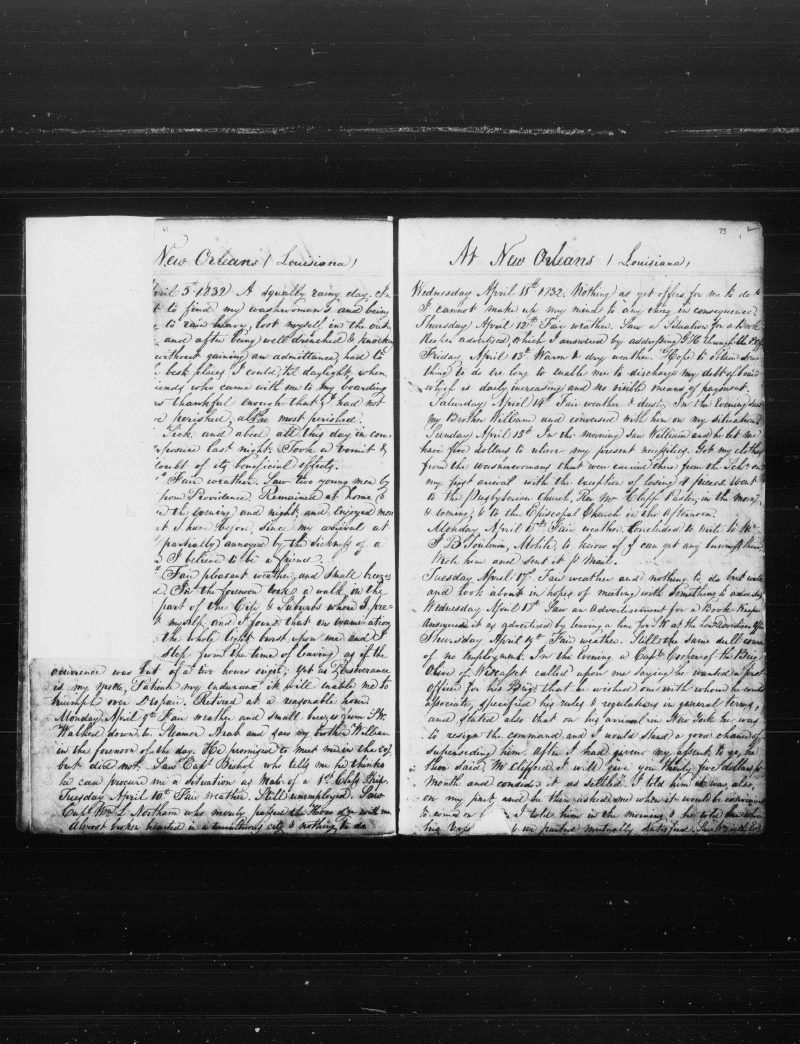 New Orleans (Louisiana)
April 5th 1832 A squally rainy day. In
to find my washwoman's and being
to rain heavy, lost myself in the out
and after being well drenched & knockin
without gaining an admittance, had to
best places I could, till daylight, when
friends who came with me to my boarding
thankful enough that I had not
perished, altho most perished.
Sick, and abed all this day in con-
posure last night. Took a vomit &
doubt of its beneficial effects.
Fair weather. Saw two young men by
from Providence. Remained at home &
in the evening and night, and enjoyed more
I have before, since my arrival at
partially annoyed by the sickness of a
I believe to be a friend.
Fair pleasant weather and small breezes
In the forenoon took a walk in the
part of the City & Suburbs where I
myself, and I found that on examination
the whole light burst upon me and I
step from the time of leaving as if the
occurrence was but of a two hours exist; yet as Perseverance
is my motto, Patient my endurance it will enable me to
triumph over Despair. Retired at a reasonable hour
Monday, April 9th Fair weather and small breezes from SW.
Walked down to Steamer Arab and saw my brother William
in the forenoon of the day. He promised to meet me in the
but did not. Saw Capt Bishop who tells me he thinks
he can procure me a situation as Mate of a 1st Class Ship.
Tuesday April 10th Fair weather. Still unemployed. Saw
Capt Wm L Northam who merely passed the How d'ye with me
Almost broken hearted in a tumultuous city & nothing to do
73
At New Orleans (Louisiana)
Wednesday April 11th 1832. Nothing as yet offers for me to do &
I cannot make up my mind to any thing in consequence
Thursday April 12th Fair weather. Saw a Situation for a Book
Keeper advertised which I answered by addressing through the
Friday April 13th Warm & dry weather. Hope to obtain some
thing to do ere long to enable me to discharge my debt of board
which is daily increasing and no visible means of payment.
Saturday April 14th Fair weather & dusty. In the Evening
my Brother William and conversed with him on my situation
Sunday April 15th In the morning saw William and he let me
have five dollars to relieve my present necessities. Got my clothes
from the washerwomans that were carried there from the Schr on
my first arrival with the exception of losing 4 pieces. Went
to the Presbyterian Church, Rev Mr Clapp Pastor, in the morng
& evening, & to the Episcopal Church in the afternoon.
Monday April 16th Fair weather. Concluded to write to Mr
J B Toulmin, Mobile, to know if I can get any business there.
Wrote him and sent it pr Mail.
Tuesday April 17th Fair weather and nothing to do but walk
and look about in hopes of meeting with something to
Wednesday April 18th Saw an advertisement for a Book-Keeper
answered it as advertised by leaving a line for at the
Thursday April 19th Fair weather. Still the same dull course
of no employment. In the Evening a Capt Cooper of the Brig
Olive of Wiscasset called upon me saying he wanted a first
officer for his Brig, that he wished one with whom he could
associate, specified his rules & regulations in general terms,
and stated also that on his arrival in New York he was
to resign the command and I would stand a good chance of
superseding him. After I had given my assent to go, he
then said, Mr Clifford I will give you thirty five dollars pr
month and consider it as settled. I told him it was also,
on my part, and he then asked me when it would be convenient
to come on I told him in the morning & he told me
brig & we parted mutually satisfied. Saw